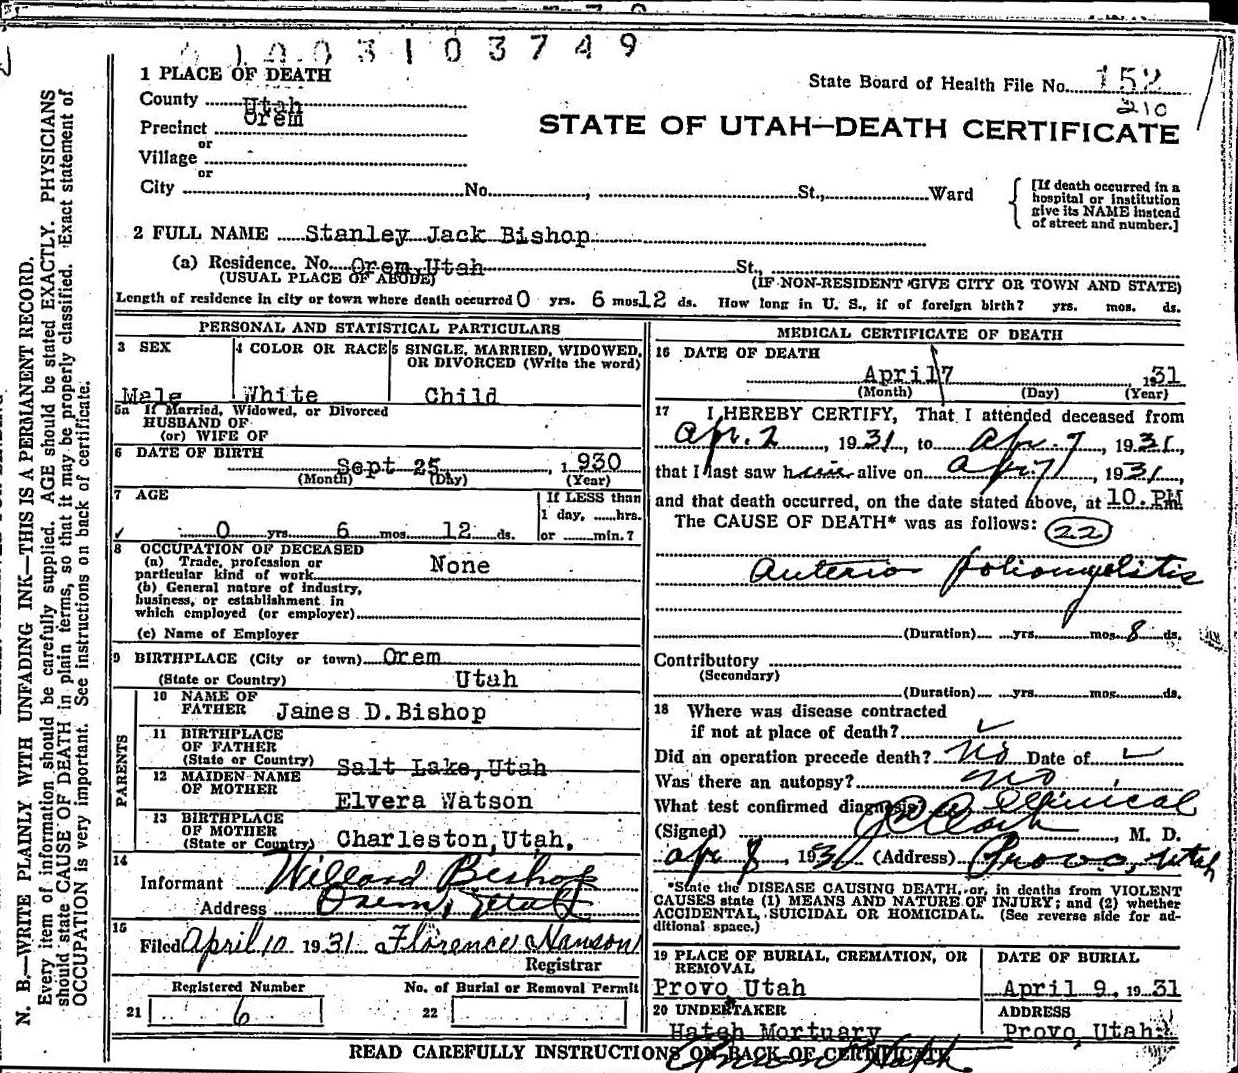 3 1 0 3 7 4 9
1 PLACE OF DEATH
State Board of Health File No. 152
210
County Utah
Precinct Orem
STATE OF UTAH—DEATH CERTIFICATE
or
Village
or
City No. , St., Ward
[If death occurred in a hospital or institution give its NAME instead of street and number.]
2 FULL NAME Stanley Jack Bishop
(a) Residence. No. Orem, Utah St.,
(USUAL PLACE OF ABODE) (IF NON-RESIDENT GIVE CITY OR TOWN AND STATE)
Length of residence in city or town where death occurred 0 yrs. 6 mos. 12 ds. How long in U. S., if of foreign birth? yrs. mos. ds.
PERSONAL AND STATISTICAL PARTICULARS
3 SEX
Male
4 COLOR OR RACE
White
5 SINGLE, MARRIED, WIDOWED, OR DIVORCED (Write the word)
Child
5a If Married, Widowed, or Divorced
HUSBAND OF
(or) WIFE OF
6 DATE OF BIRTH
Sept 25, 1930
(Month) (Day) (Year)
7 AGE
If LESS than
1 day, hrs.
0 yrs. 6 mos. 12 ds. or min.?
8 OCCUPATION OF DECEASED
(a) Trade, profession or
particular kind of work None
(b) General nature of industry,
business, or establishment in
which employed (or employer)
(c) Name of Employer
9 BIRTHPLACE (City or town) Orem
(State or Country) Utah
PARENTS
10 NAME OF FATHER James D.Bishop
11 BIRTHPLACE OF FATHER
(State or Country) Salt Lake, Utah
12 MAIDEN NAME OF MOTHER Elvera Watson
13 BIRTHPLACE OF MOTHER
(State or Country) Charleston, Utah.
14
Informant Willard Bishop
Address Orem, Utah
15
Filed April 10 1931 Florence Hanson
Registrar
Registered Number
21 6
No. of Burial or Removal Permit
22
MEDICAL CERTIFICATE OF DEATH
16 DATE OF DEATH
April 7 1931
(Month) (Day) (Year)
17 I HEREBY CERTIFY, That I attended deceased from
Apr. 2, 1931, to Apr. 7, 1931,
that I last saw him alive on Apr 7, 1931,
and that death occurred, on the date stated above, at 10.PM
The CAUSE OF DEATH* was as follows: 22
Anterio poliomyelitis
(Duration) yrs. mos. 8 ds.
Contributory
(Secondary)
(Duration) yrs. mos. ds.
18 Where was disease contracted
if not at place of death?
Did an operation precede death? No Date of
Was there an autopsy? no
What test confirmed diagnosis? Clinical
(Signed) , M. D.
Apr 8, 193 (Address) Provo, Utah
*State the DISEASE CAUSING DEATH, or, in deaths from VIOLENT
CAUSES state (1) MEANS AND NATURE OF INJURY; and (2) whether
ACCIDENTAL, SUICIDAL OR HOMICIDAL. (See reverse side for ad-
ditional space.)
19 PLACE OF BURIAL, CREMATION, OR REMOVAL
Provo Utah
DATE OF BURIAL
April 9, 1931
20 UNDERTAKER
Hatch Mortuary
ADDRESS
Provo, Utah
READ CAREFULLY INSTRUCTIONS ON BACK OF CERTIFICATE
N. B.—WRITE PLAINLY WITH UNFADING INK—THIS IS A PERMANENT RECORD.
Every item of information should be carefully supplied. AGE should be stated EXACTLY. PHYSICIANS
should state CAUSE OF DEATH in plain terms, so that it may be properly classified. Exact statement of
OCCUPATION is very important. See instructions on back of certificate.